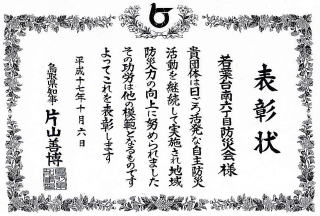 表彰状
若葉台南六丁目防災会 様
貴団体は日ころ活発な自主防災
活動を継続して実施され地域
防災力の向上に努められました
その功労は他の模範となるものです
よってこれを表彰します
平成十七年十月六日
鳥取県知事 片山善博